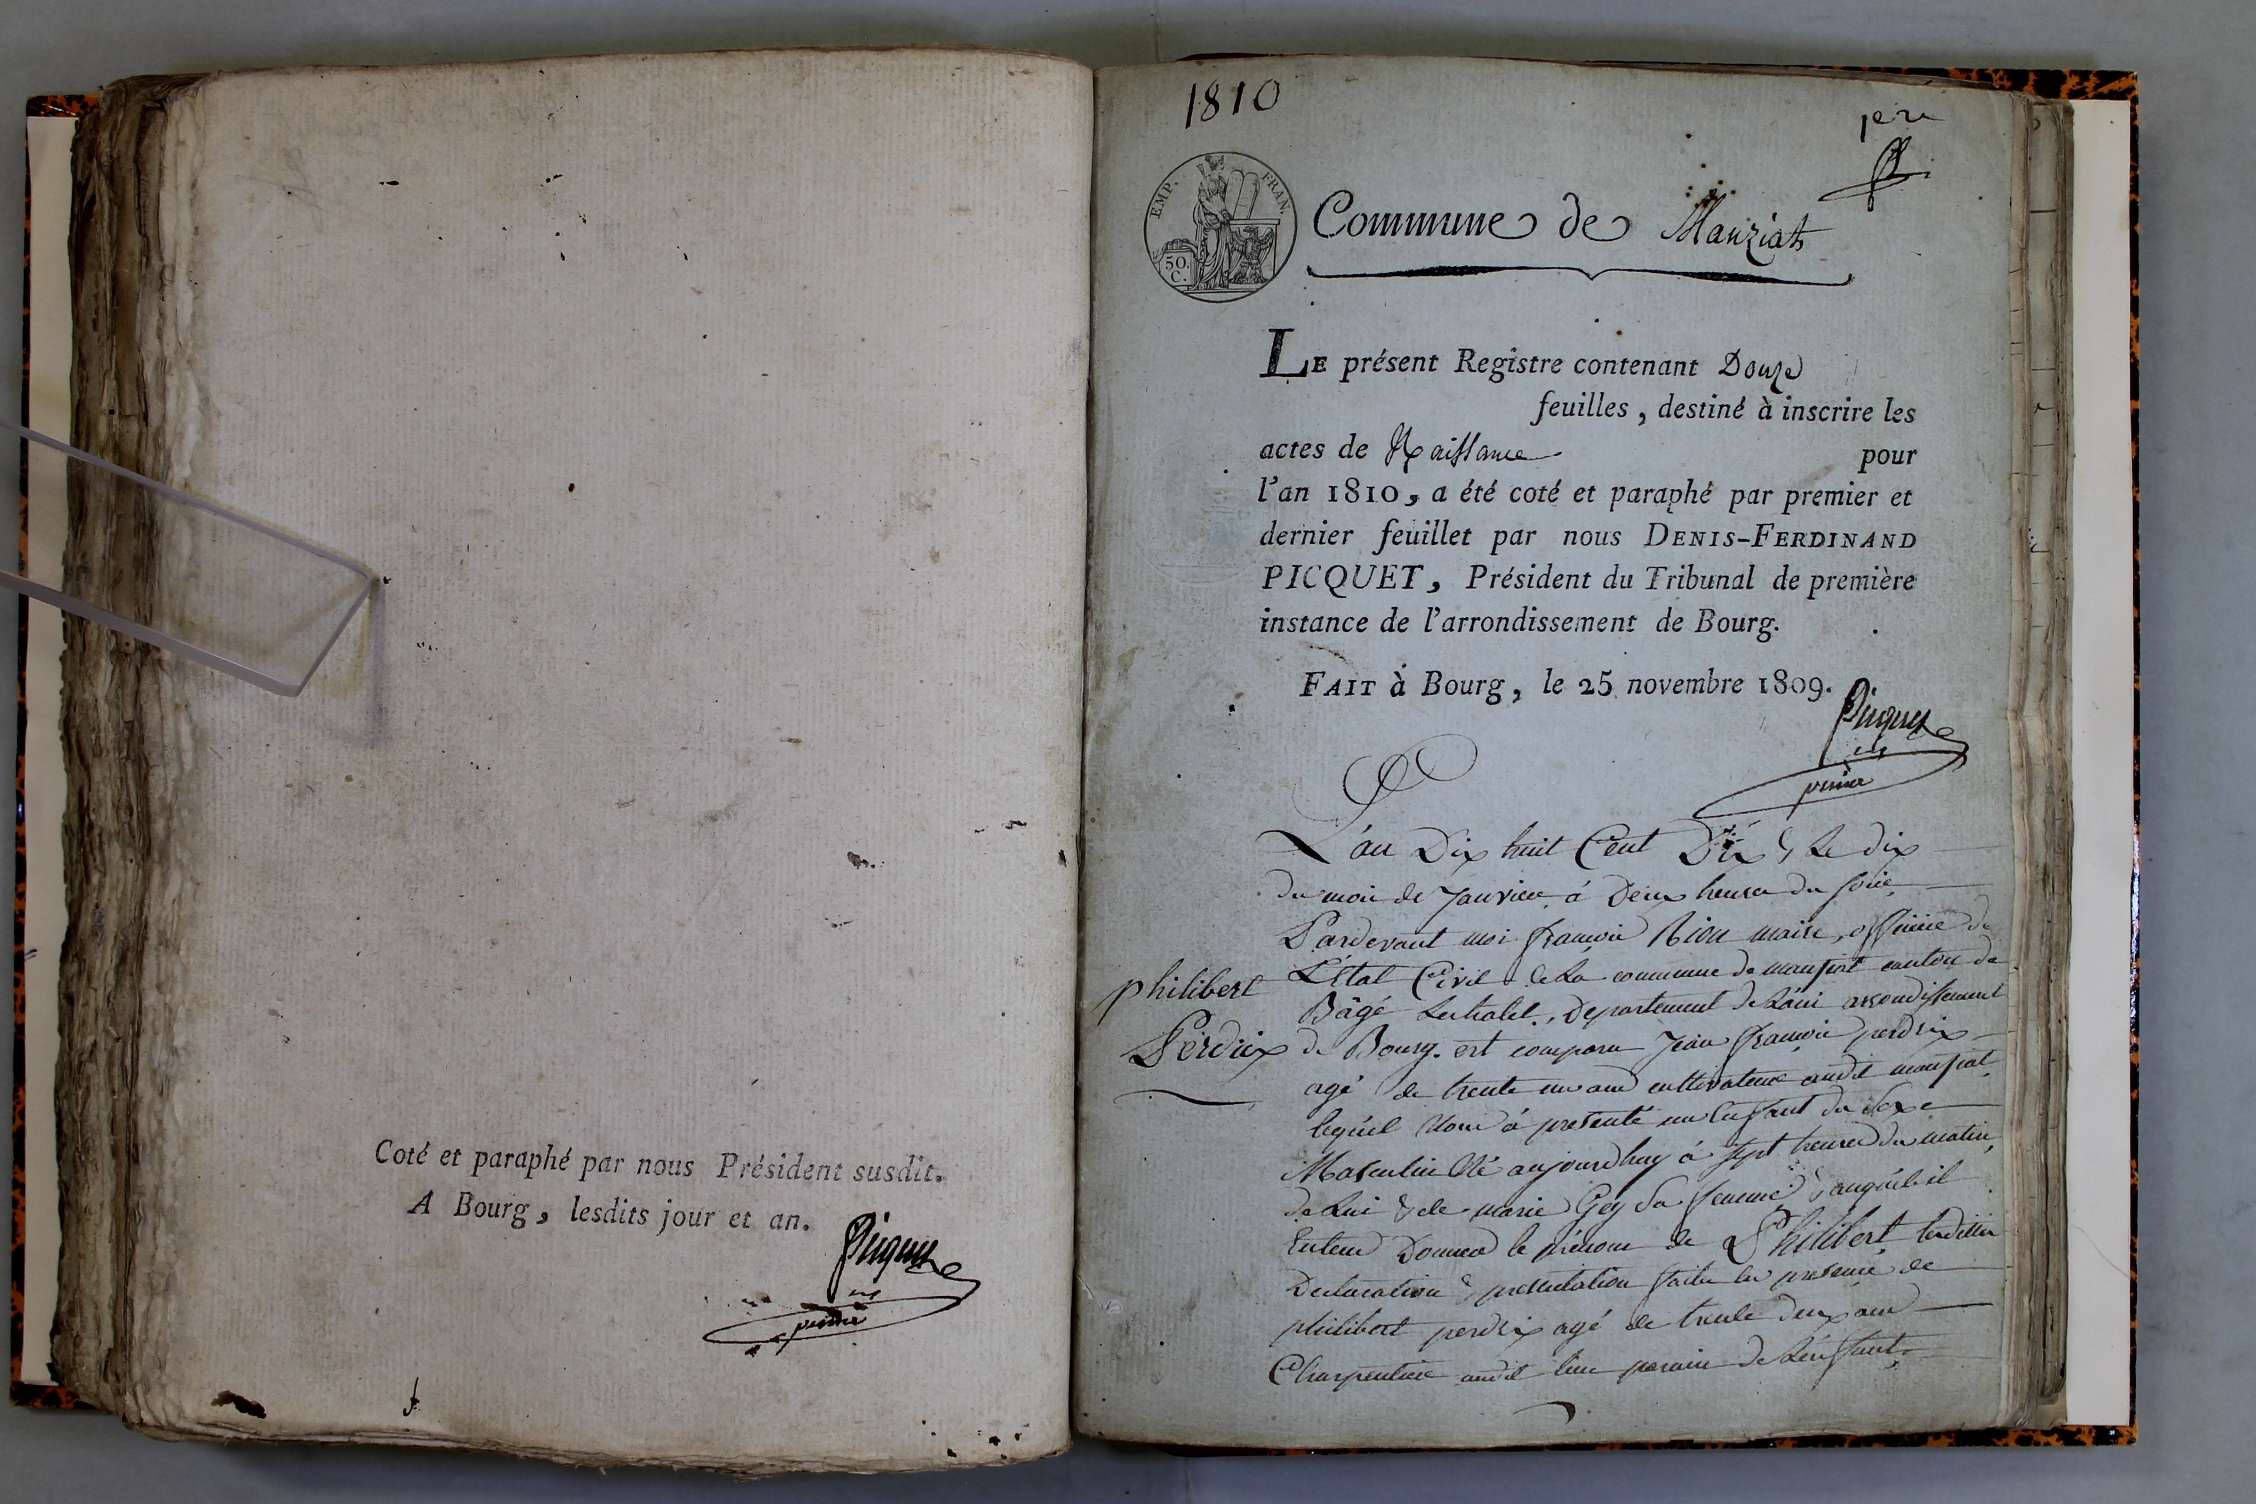 Coté et paraphé par nous Président susdit.
A Bourg, lesdits jour et an.
Picquet
premier
1810
1er
EMP. FRAN.
50.
C.
Commune de Manziat
LE présent Registre contenant Douze
feuilles, destiné à inscrire les
actes de Naissance pour
l'an 1810, a été coté et paraphé par premier et
dernier feuillet par nous DENIS-FERDINAND
PICQUET, Président du Tribunal de première
instance de l'arrondissement de Bourg.
FAIT à Bourg, le 25 novembre 1809.
Picquet
premier
L'an Dix huit Cent Dix & Le dix
du mois de Janvier à Deux heures du soir,
Pardevant moi françois Rion maire, officier de
L'État Civil de La commune de manziat canton de
philibert
Perdrix
Bâgé Lechatel, Departement de L'ain arrondissement
de Bourg. est comparu Jean françois perdrix
agé de trente un ans cultivateur audit manziat
lequel Nous à presenté un Enfant du Sexe
Masculin Né aujourdhuy à sept heures du matin,
de Lui & de marie Gey Sa femme & auquel il
Declaration & presentation faite en presence de
philibert perdrix agé de trente deux ans
Charpentier audit lieu parain de L'enfant